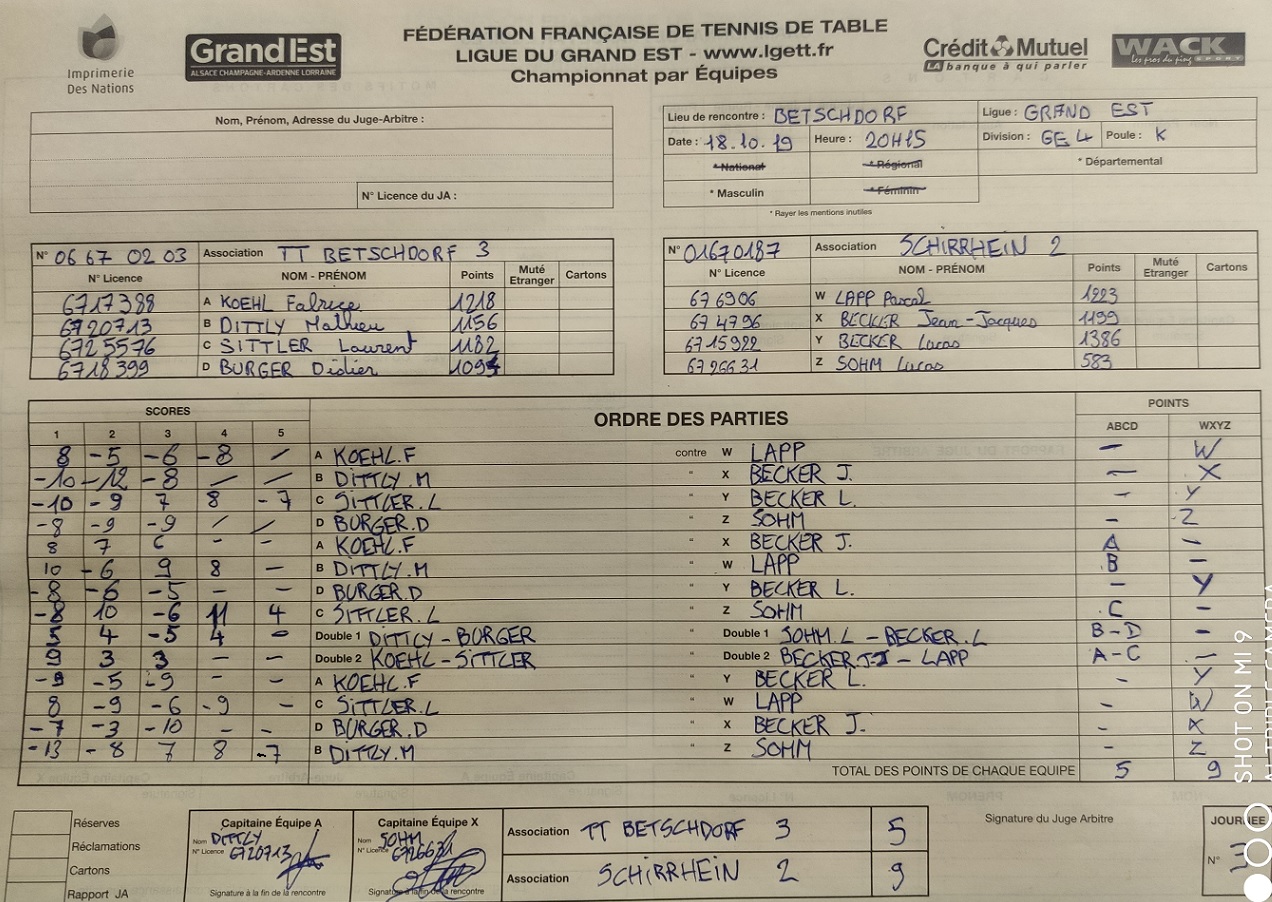 FÉDÉRATION FRANÇAISE DE TENNIS DE TABLE
LIGUE DU GRAND EST - www.lgett.fr
Championnat par Équipes
Imprimerie
Des Nations
GrandEst
ALSACE CHAMPAGNE-ARDENNE LORRAINE
Crédit Mutuel
LA banque à qui parler
WACK
les pros du ping SPORT
Nom, Prénom, Adresse du Juge-Arbitre :
N° Licence du JA :
Lieu de rencontre : BETSCHDORF Ligue : GRAND EST
Date : 18.10.19 Heure : 20H15 Division : GE 4 Poule : K
* National * Régional * Départemental
* Masculin * Féminin
* Rayer les mentions inutiles
N° 06 67 02 03 Association TT BETSCHDORF 3
N° Licence NOM - PRÉNOM Points Muté Etranger Cartons
6717388 A KOEHL Fabrice 1218
6720713 B DITTLY Mathieu 1156
6725576 C SITTLER Laurent 1182
6718399 D BURGER Didier
N° 01670187 Association SCHIRRHEIN 2
N° Licence NOM - PRÉNOM Points Muté Etranger Cartons
676906 W LAPP Pascal 1223
674796 X BECKER Jean-Jacques 1199
6715922 Y BECKER Lucas 1386
6726631 Z SOHM Lucas 583
SCORES ORDRE DES PARTIES POINTS
1 2 3 4 5 ABCD WXYZ
8 -5 -6 -8 / A KOEHL.F contre W LAPP - W
-10 -12 -8 / / B DITTLY.M " X BECKER J. - X
-10 -9 7 8 -7 C SITTLER.L " Y BECKER L. - Y
-8 -9 -9 / / D BURGER.D " Z SOHM - Z
8 7 6 - - A KOEHL.F " X BECKER J. A -
10 -6 9 8 - B DITTLY.M " W LAPP B -
-8 -6 -5 - - D BURGER.D " Y BECKER L. - Y
-8 10 -6 11 4 C SITTLER.L " Z SOHM C -
5 4 -5 4 - Double 1 DITTLY - BURGER " Double 1 SOHM.L - BECKER.L B-D -
9 3 3 - - Double 2 KOEHL - SITTLER " Double 2 BECKER J-J - LAPP A-C -
-9 -5 -9 - - A KOEHL.F " Y BECKER L. - Y
8 -9 -6 -9 - C SITTLER.L " W LAPP - W
-7 -3 -10 - - D BURGER.D " X BECKER J. - X
-13 -8 7 8 -7 B DITTLY.M " Z SOHM - Z
TOTAL DES POINTS DE CHAQUE EQUIPE 5 9
Réserves
Réclamations
Cartons
Rapport JA
Capitaine Équipe A
Nom DITTLY
N° Licence 6720713
Signature à la fin de la rencontre
Capitaine Équipe X
Nom SOHM
N° Licence 6726631
Signature à la fin de la rencontre
Association TT BETSCHDORF 3 5
Association SCHIRRHEIN 2 9
Signature du Juge Arbitre
JOURNÉE
N° 3
SHOT ON MI 9
AI TRIPLE CAMERA